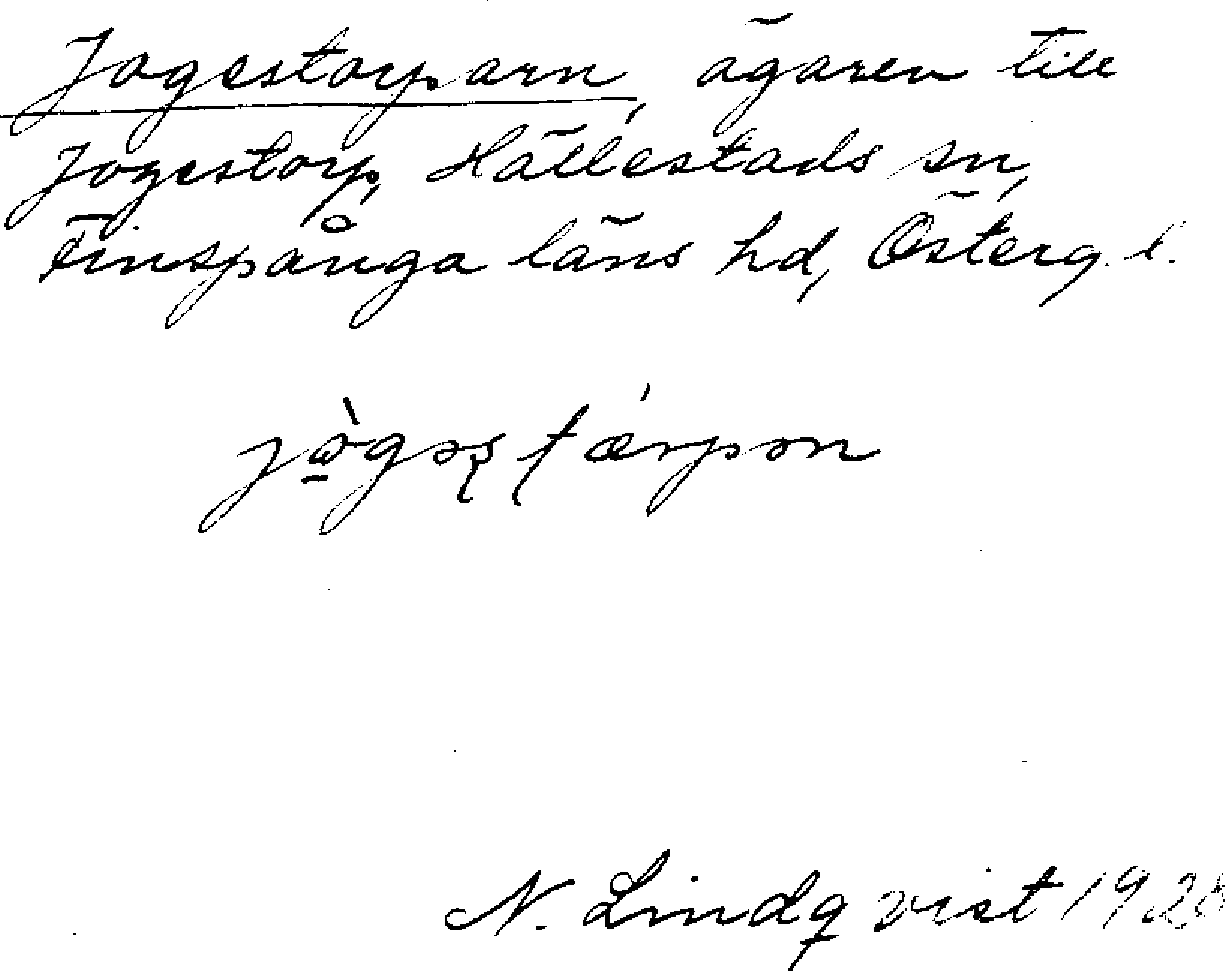 Jogestorparn, ägaren till
Jogestorp, Hällestads sn,
Finspånga läns hd, Österg. l.
N. Lindqvist